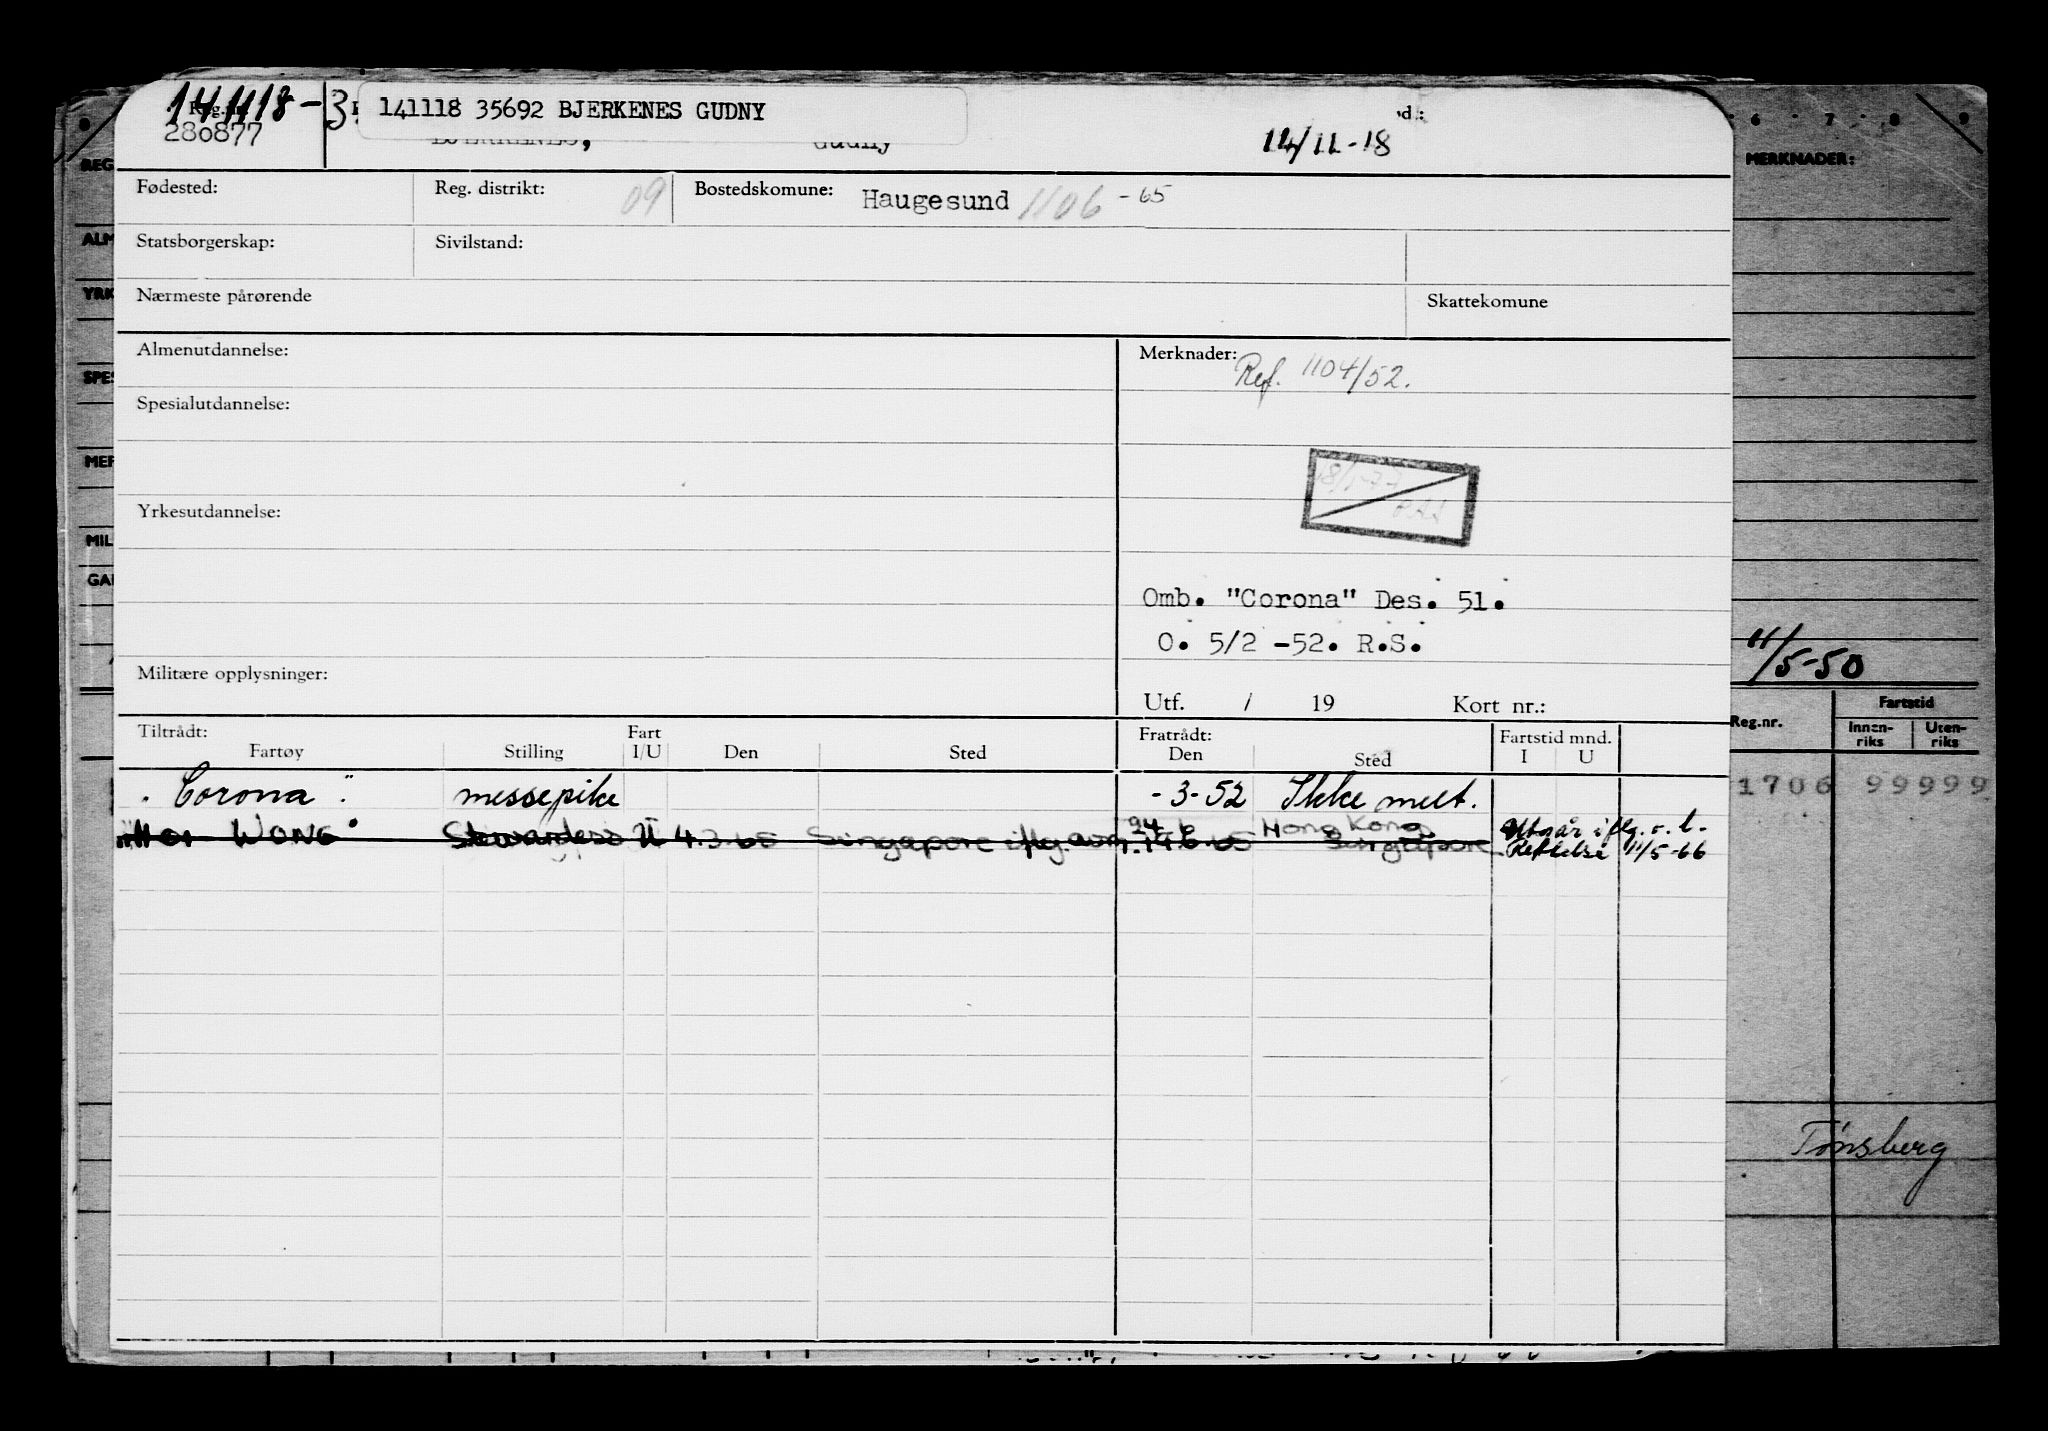 141118-3
141118 35692 BJERKENES GUDNY
Reg.nr.
280877
BJERKENES, Gudny
14/11-18
Fødested: Reg. distrikt: 09 Bostedskomune: Haugesund 1106 -65
Statsborgerskap: Sivilstand:
Nærmeste pårørende Skattekomune
Almenutdannelse: Merknader: Ref. 1104/52.
Spesialutdannelse:
Yrkesutdannelse:
Omb. "Corona" Des. 51.
O. 5/2 -52. R.S.
Militære opplysninger:
Utf. / 19 Kort nr.:
Tiltrådt: Fart Fratrådt: Fartstid mnd.
Fartøy Stilling I/U Den Sted Den Sted I U
"Corona" messepike -3-52 Ikke melt.
WONG" Stewardess U 4.3.65 Singapore iflg. Hong Kong Singapore Utgår iflg. v. l.
Rettelse 11/5-66
REG
ALM
YRK
SPES
MER
MIL
GAI
6 7 8 9
MERKNADER:
11/5-50
Reg.nr. Fartstid
Innen-riks Uten-riks
1706 99999
Tønsberg